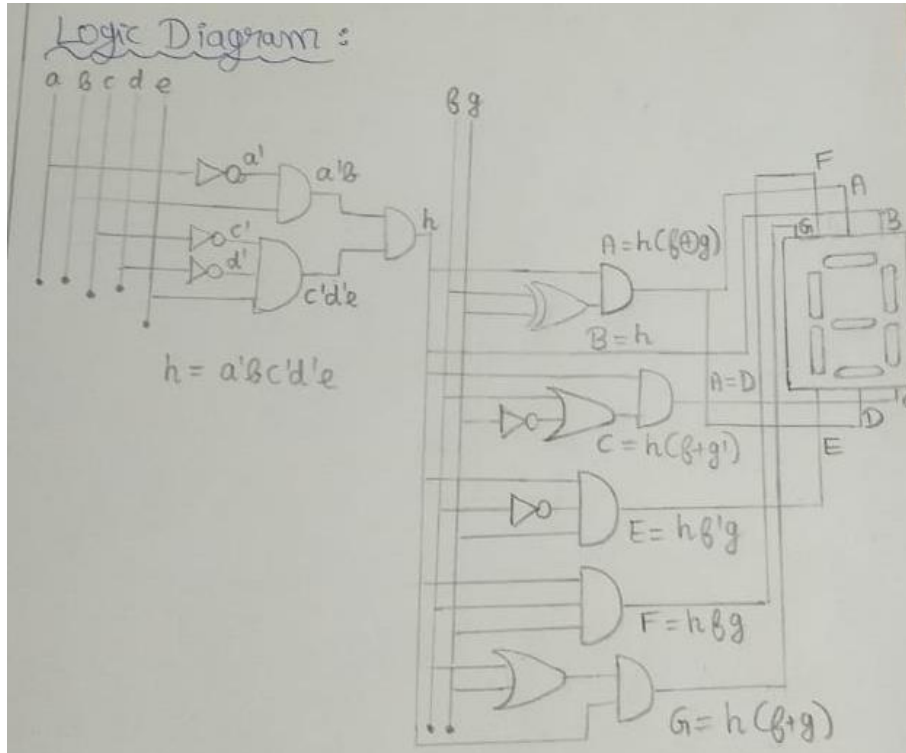 Logic Diagram :
a b c d e
f g
a'
a'b
c'
d'
c'd'e
h
h = a'bc'd'e
F
A
B
G
A = h(f⊕g)
B = h
A = D
D
E
C = h(f+g')
E = hf'g
F = hfg
G = h(f+g)